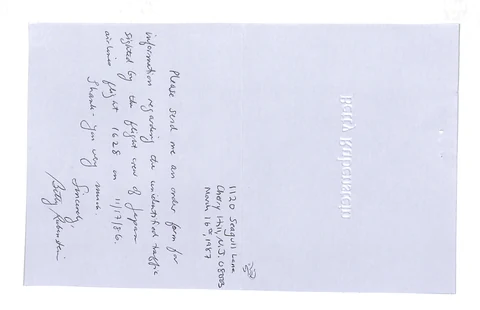 1120 Seagull Lane
Cherry Hill, N.J. 08003
March 16, 1987
Please send me an order form for
information regarding the unidentified traffic
sighted by the flight crew of Japan
airlines flight 1628 on 11/17/86.
Thank-you very much.
Sincerely,
Betty Rubinstein